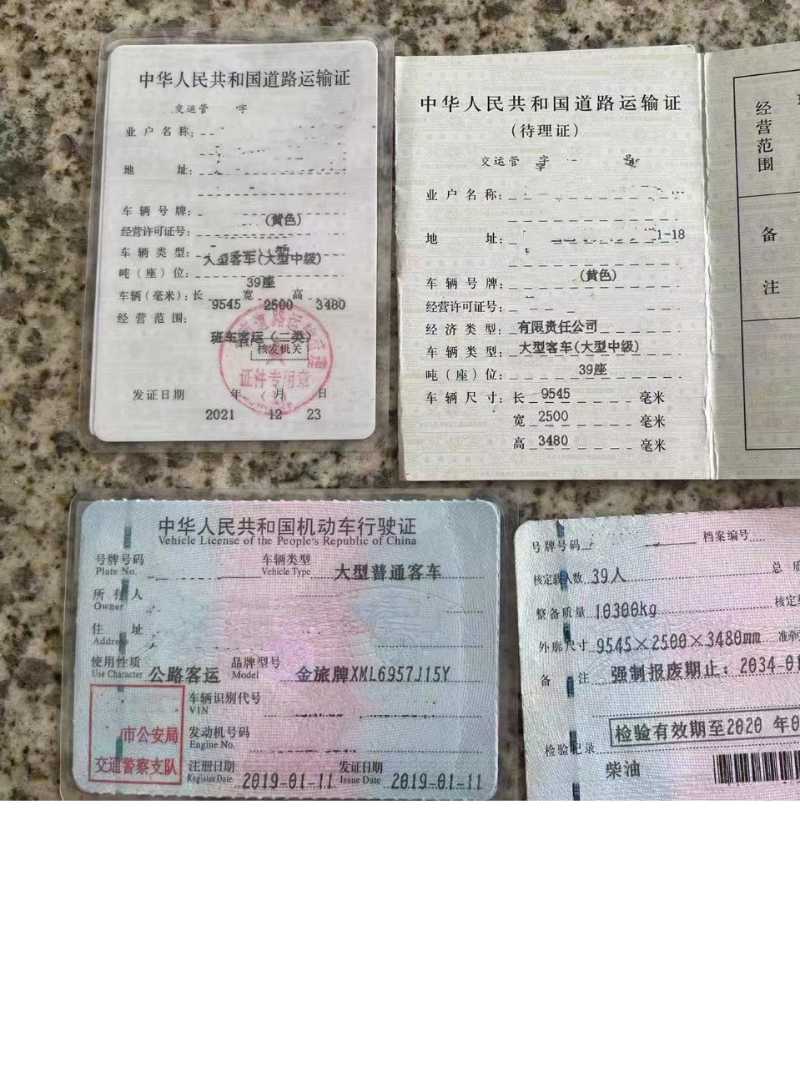 中华人民共和国道路运输证
交运管 字
业户名称:
地 址:
车辆号牌:
(黄色)
经营许可证号:
车辆类型:
大型客车(大型中级)
吨(座)位:
39座
车辆(毫米):长 宽 高
9545 2500 3480
经营范围:
班车客运(二类)
核发机关
证件专用章
发证日期 年 月 日
2021 12 23
中华人民共和国道路运输证
(待理证)
交运管 字 号
业户名称:
地 址:
1-18
车辆号牌:
(黄色)
经营许可证号:
经济类型:有限责任公司
车辆类型:大型客车(大型中级)
吨(座)位:
39座
车辆尺寸:长 9545 毫米
宽 2500 毫米
高 3480 毫米
经营范围
备注
中华人民共和国机动车行驶证
Vehicle License of the People's Republic of China
号牌号码 车辆类型 大型普通客车
Plate No. Vehicle Type
所有人
Owner
住 址
Address
使用性质 公路客运 品牌型号 金旅牌XML6957J15Y
Use Character Model
车辆识别代号
VIN
市公安局
交通警察支队
发动机号码
Engine No.
注册日期 2019-01-11 发证日期 2019-01-11
Register Date Issue Date
号牌号码 档案编号
核定载人数 39人 总 质
整备质量 10300kg 核定
外廓尺寸 9545×2500×3480mm 准牵
备 注 强制报废期止:2034-01
检验记录 检验有效期至2020 年0
柴油